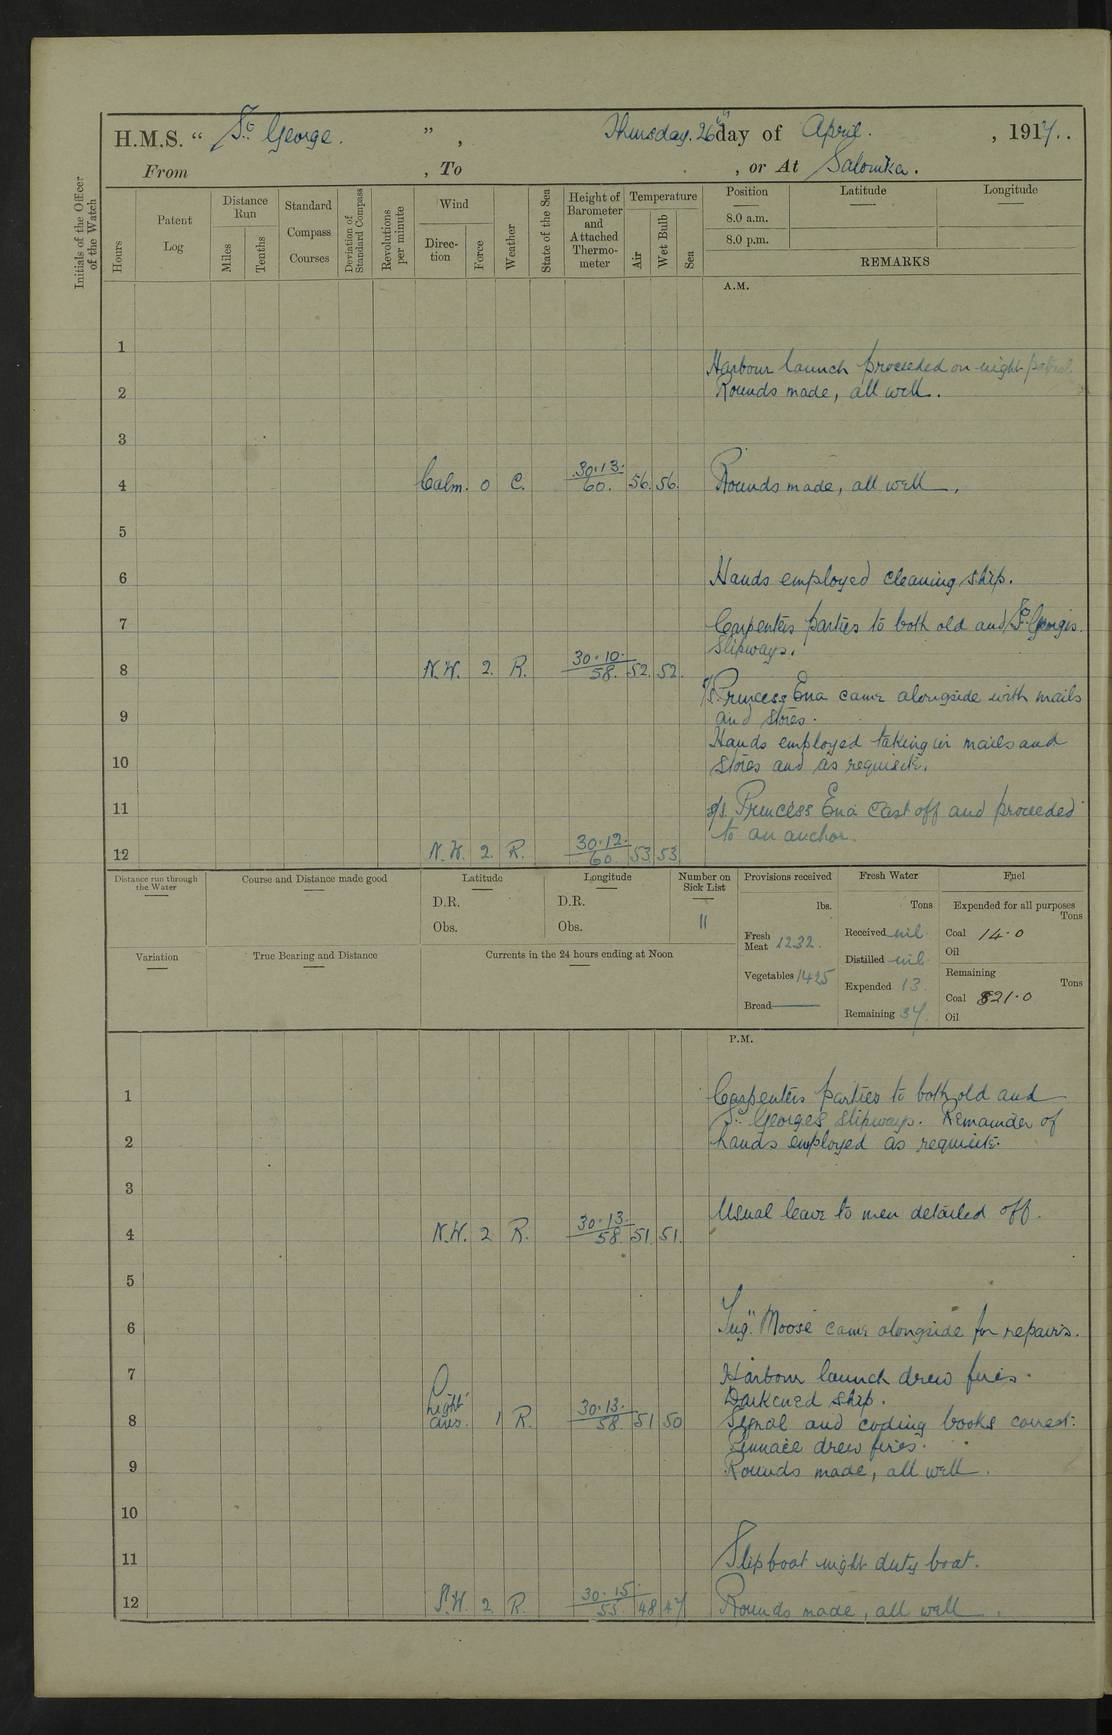 H.M.S. “ St. George. ”, Thursday. 26th day of April. , 1917..
From , To , or At Salonika.
Initials of the Officer of the Watch
Hours
Patent Log
Distance Run
Miles
Tenths
Standard Compass Courses
Deviation of Standard Compass
Revolutions per minute
Wind
Direc-tion
Force
Weather
State of the Sea
Height of Barometer and Attached Thermo-meter
Temperature
Air
Wet Bulb
Sea
Position
Latitude
Longitude
8.0 a.m.
8.0 p.m.
REMARKS
A.M.
1
Harbour launch proceeded on night patrol.
2 Rounds made, all well.
3
4 Calm. 0 C. 30.13. 60. 56. 56. Rounds made, all well.
5
6 Hands employed cleaning ship.
7 Carpenters parties to both old and St. Georges.
Slipways.
8 N.W. 2. R. 30.10. 58. 52. 52.
S/S. Princess Ena came alongside with mails
9 and stores.
Hands employed taking in mails and
10 stores and as requisite.
11 S/S. Princess Ena cast off and proceeded
to an anchor.
12 N.W. 2. R. 30.12. 60. 53 53
Distance run through the Water
Course and Distance made good
Latitude
D.R.
Obs.
Longitude
D.R.
Obs.
Number on Sick List
11
Provisions received
lbs.
Fresh Meat 1232.
Vegetables 1425
Bread
Fresh Water
Tons
Received nil
Distilled nil
Expended 13.
Remaining 37.
Fuel
Expended for all purposes
Tons
Coal 14.0
Oil
Remaining
Tons
Coal 821.0
Oil
Variation
True Bearing and Distance
Currents in the 24 hours ending at Noon
P.M.
1 Carpenters parties to both old and
St. Georges slipways. Remainder of
2 hands employed as requisite.
3
Usual leave to men detailed off.
4 N.W. 2 R. 30.13. 58. 51. 51.
5
6 Tug "Moose" came alongside for repairs.
7 Harbour launch drew fires.
Darkened ship.
8 Light airs. 1 R. 30.13. 58. 51 50 Signal and coding books correct.
Pinnace drew fires.
9 Rounds made, all well.
10
11 Slipboat night duty boat.
12 2. R. 30.15. 55 48 47 Rounds made, all well.